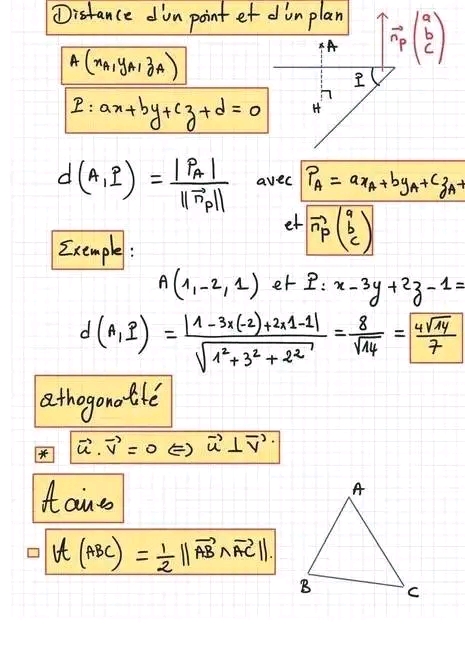 Distance d'un point et d'un plan
A(xA, yA, zA)
P : ax + by + cz + d = 0
A
H
P
n⃗p (a b c)
d(A, P) = |PA| / ||n⃗p|| avec PA = axA + byA + czA +
et n⃗p (a b c)
Exemple :
A(1, -2, 1) et P : x - 3y + 2z - 1 =
d(A, P) = |1 - 3x(-2) + 2x1 - 1| / √(1² + 3² + 2²) = 8/√14 = 4√14/7
athogonalité
* u⃗ . v⃗ = 0 ⇔ u⃗ ⊥ v⃗ .
Aaires
A(ABC) = 1/2 || AB⃗ ∧ AC⃗ ||.
A
B
C